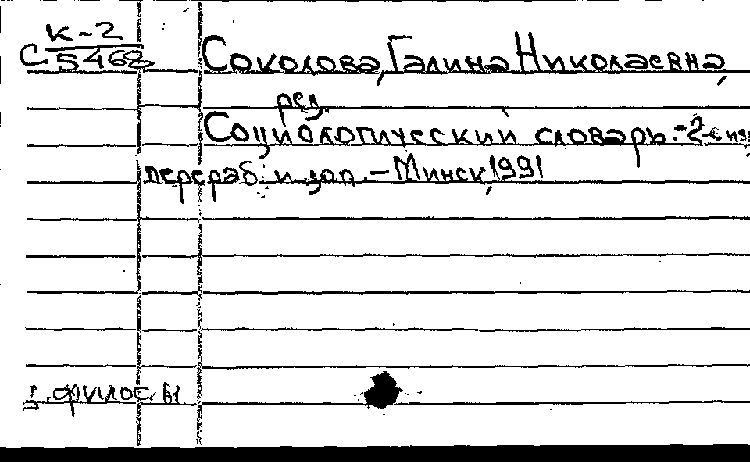 К-2
С 5468
Соколова, Галина Николаевна,
ред.
Социологический словарь. - 2-е изд
перераб. и доп. - Минск, 1991
филос.